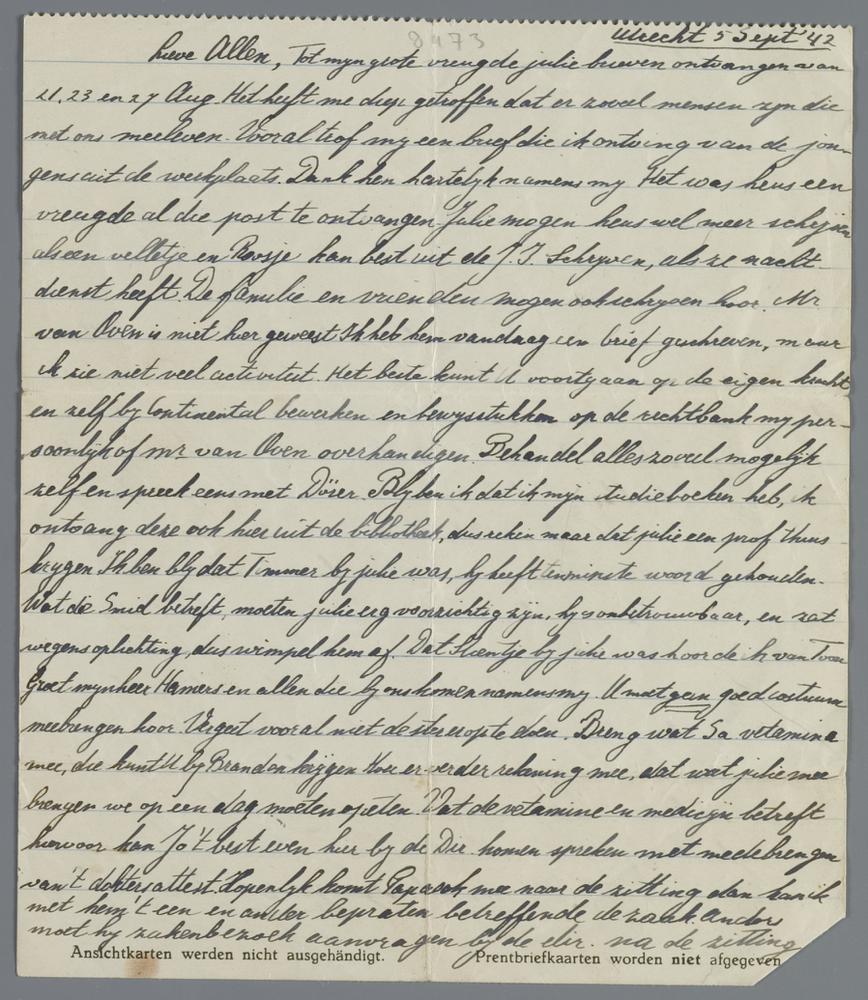 8473
Utrecht 5 Sept '42
Lieve Allen, Tot myn grote vreugde julie brieven ontvangen van
21, 23 en 27 Aug. Het heeft me diep getroffen dat er zoveel mensen zyn die
met ons meeleven. Vooral trof my een brief die ik ontving van de jon-
gens uit de werkplaats. Dank hen hartelyk namens my Het was heus een
vreugde al die post te ontvangen. Julie mogen heus wel meer schryven
als een velletje en Roosje kan best uit de J. I. Schryven, als ze nacht-
dienst heeft. De familie en vrienden mogen ook schryven hoor. Mr.
van Oven is niet hier geweest Ik heb hem vandaag een brief geschreven, maar
ik zie niet veel activiteit. Het beste kunt U voortgaan op de eigen kracht
en zelf by Continental bewerken en bewysstukken op de rechtbank my per-
soonlijk of mr van Oven overhandigen. Behandel alles zoveel mogelijk
zelf en spreek eens met Döser. Bly ben ik dat ik mijn studieboeken heb, ik
ontvang deze ook hier uit de bibliotheek, dus reken maar dat julie een prof thuis
krygen Ik ben bly dat Timmer by julie was, hy heeft tenminste woord gehouden.
Wat de Smid betreft, moeten julie erg voorzichtig zijn, hy is onbetrouwbaar, en zat
wegens oplichting, dus wimpel hem af. Dat Stientje by julie was hoorde ik van Toon
Groet mynheer Hamers en allen die by ons komen namens my. U moet geen goed costuum
meebrengen hoor. Vergeet vooral niet de ster er op te doen. Breng wat Sa vetamina
mee, die kunt U by Brandon krijgen Hou er verder rekening mee, dat wat julie mee
brengen we op een dag moeten opeten. Wat de vetamine en medicijn betreft
hiervoor kan Jo 't best even hier by de Dir. komen spreken met medebrengen
van 't doktersattest. Hopenlyk komt Papa ook mee naar de zitting dan kan ik
met hem 't een en ander bepraten betreffende de zaak anders
moet hy zakenbezoek aanvragen by de dir. na de zitting
Ansichtkarten werden nicht ausgehändigt. Prentbriefkaarten worden niet afgegeven